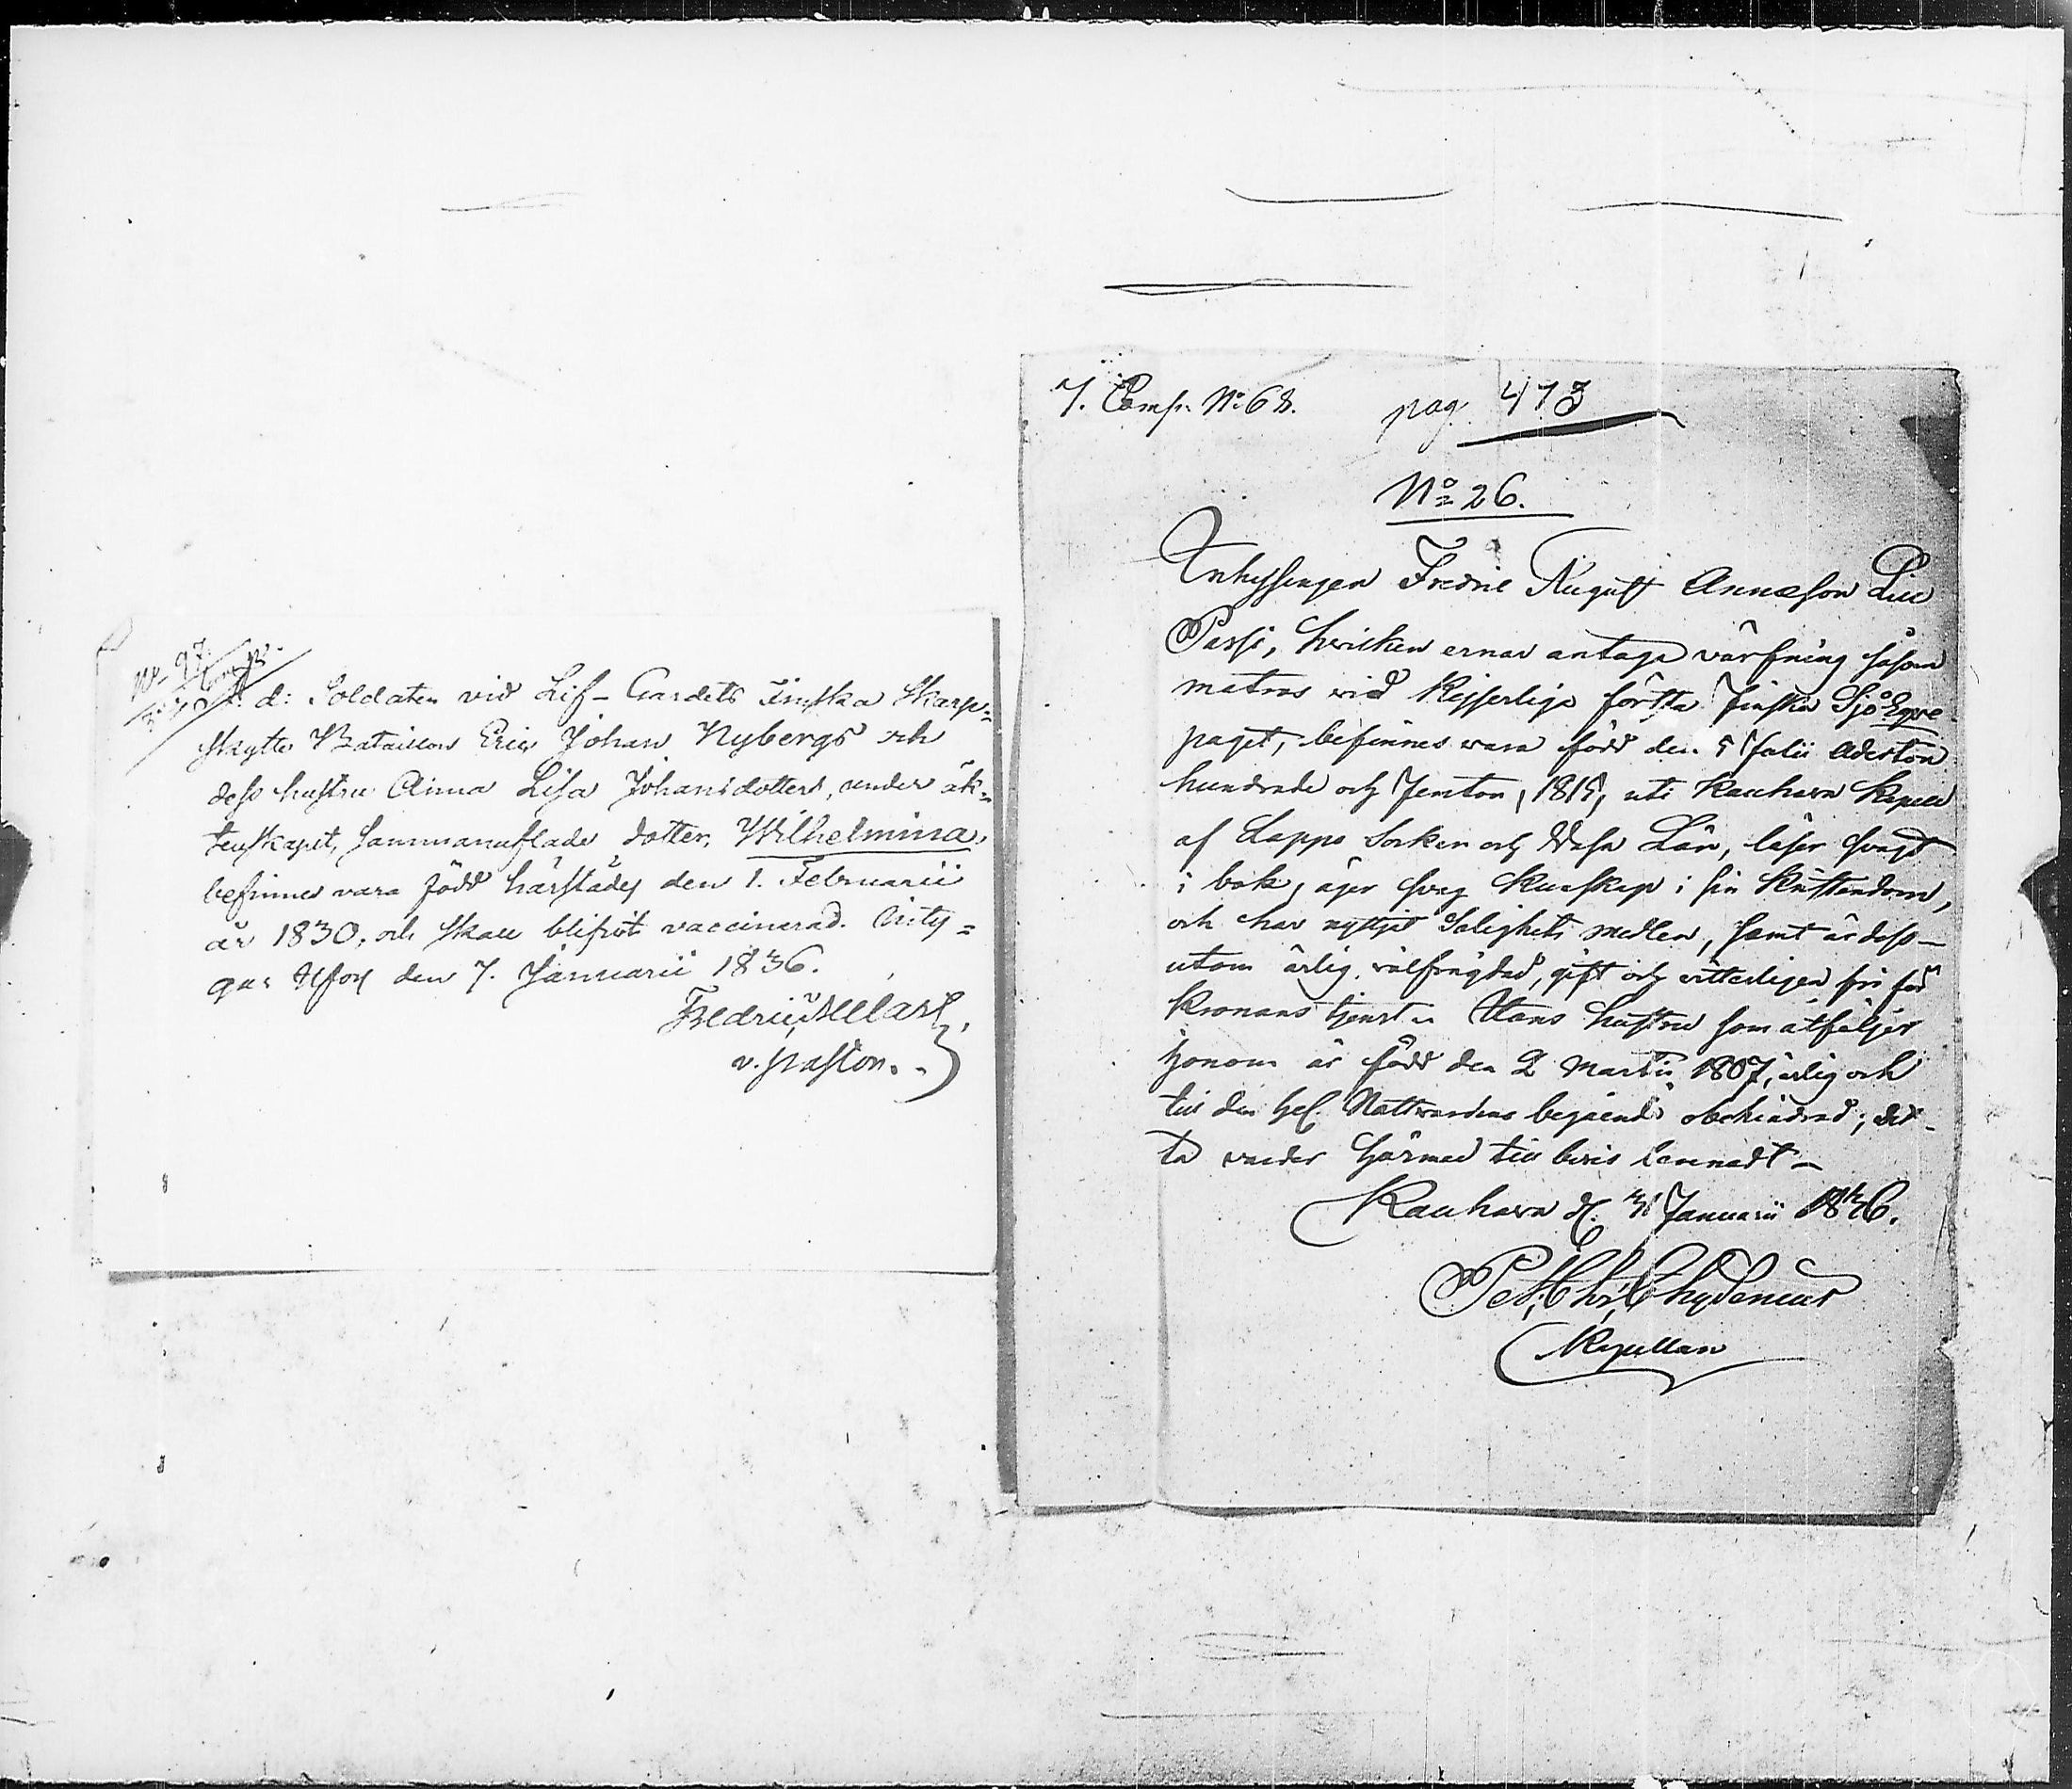 No 97.
F. d. Soldaten vid Lif-Gardets Finska Skarp=
skytte Bataillon Eric Johan Nybergs och
dess hustru Anna Lisa Johansdotters, under äk=
tenskapet, sammanaflade dotter, Wilhelmina,
befinnes vara född härstädes den 1. Februarii
år 1830, och skall blifvit vaccinerad. Bety=
gas den 7. Januarii 1836.
Fredric
v. pastor.
7. Comp. No 68. pag. 473
No 26.
Inhysingen Fredric August Annæson Liu
Passi, hvilken ernar antaga värfning såsom
matros vid Kejserliga första Finska Sjö Eqvi
paget, befinnes vara född den 5 Julii Aderton
hundrade och femton, 1815, uti Kauhava Kapell
af Lappo Sorken och Wasa Län, läser svagt
i bok, äger svag Kunskap i sin Kristendom,
och har nyttjat Salighets medlen, samt är dess-
utom ärlig, välfrägdad, gift och vitterligen fri för
Kronans tjenst. Hans hustru som åtföljer
honom är född den 2 Martii 1807, ärlig och
till den hel. Nattvardens begående obehindrad; det-
ta varder härmed till bevis lemnadt-
Kauhava d. 31 Januarii 1836.
Pet. Chr. Chydenius
Kapellan